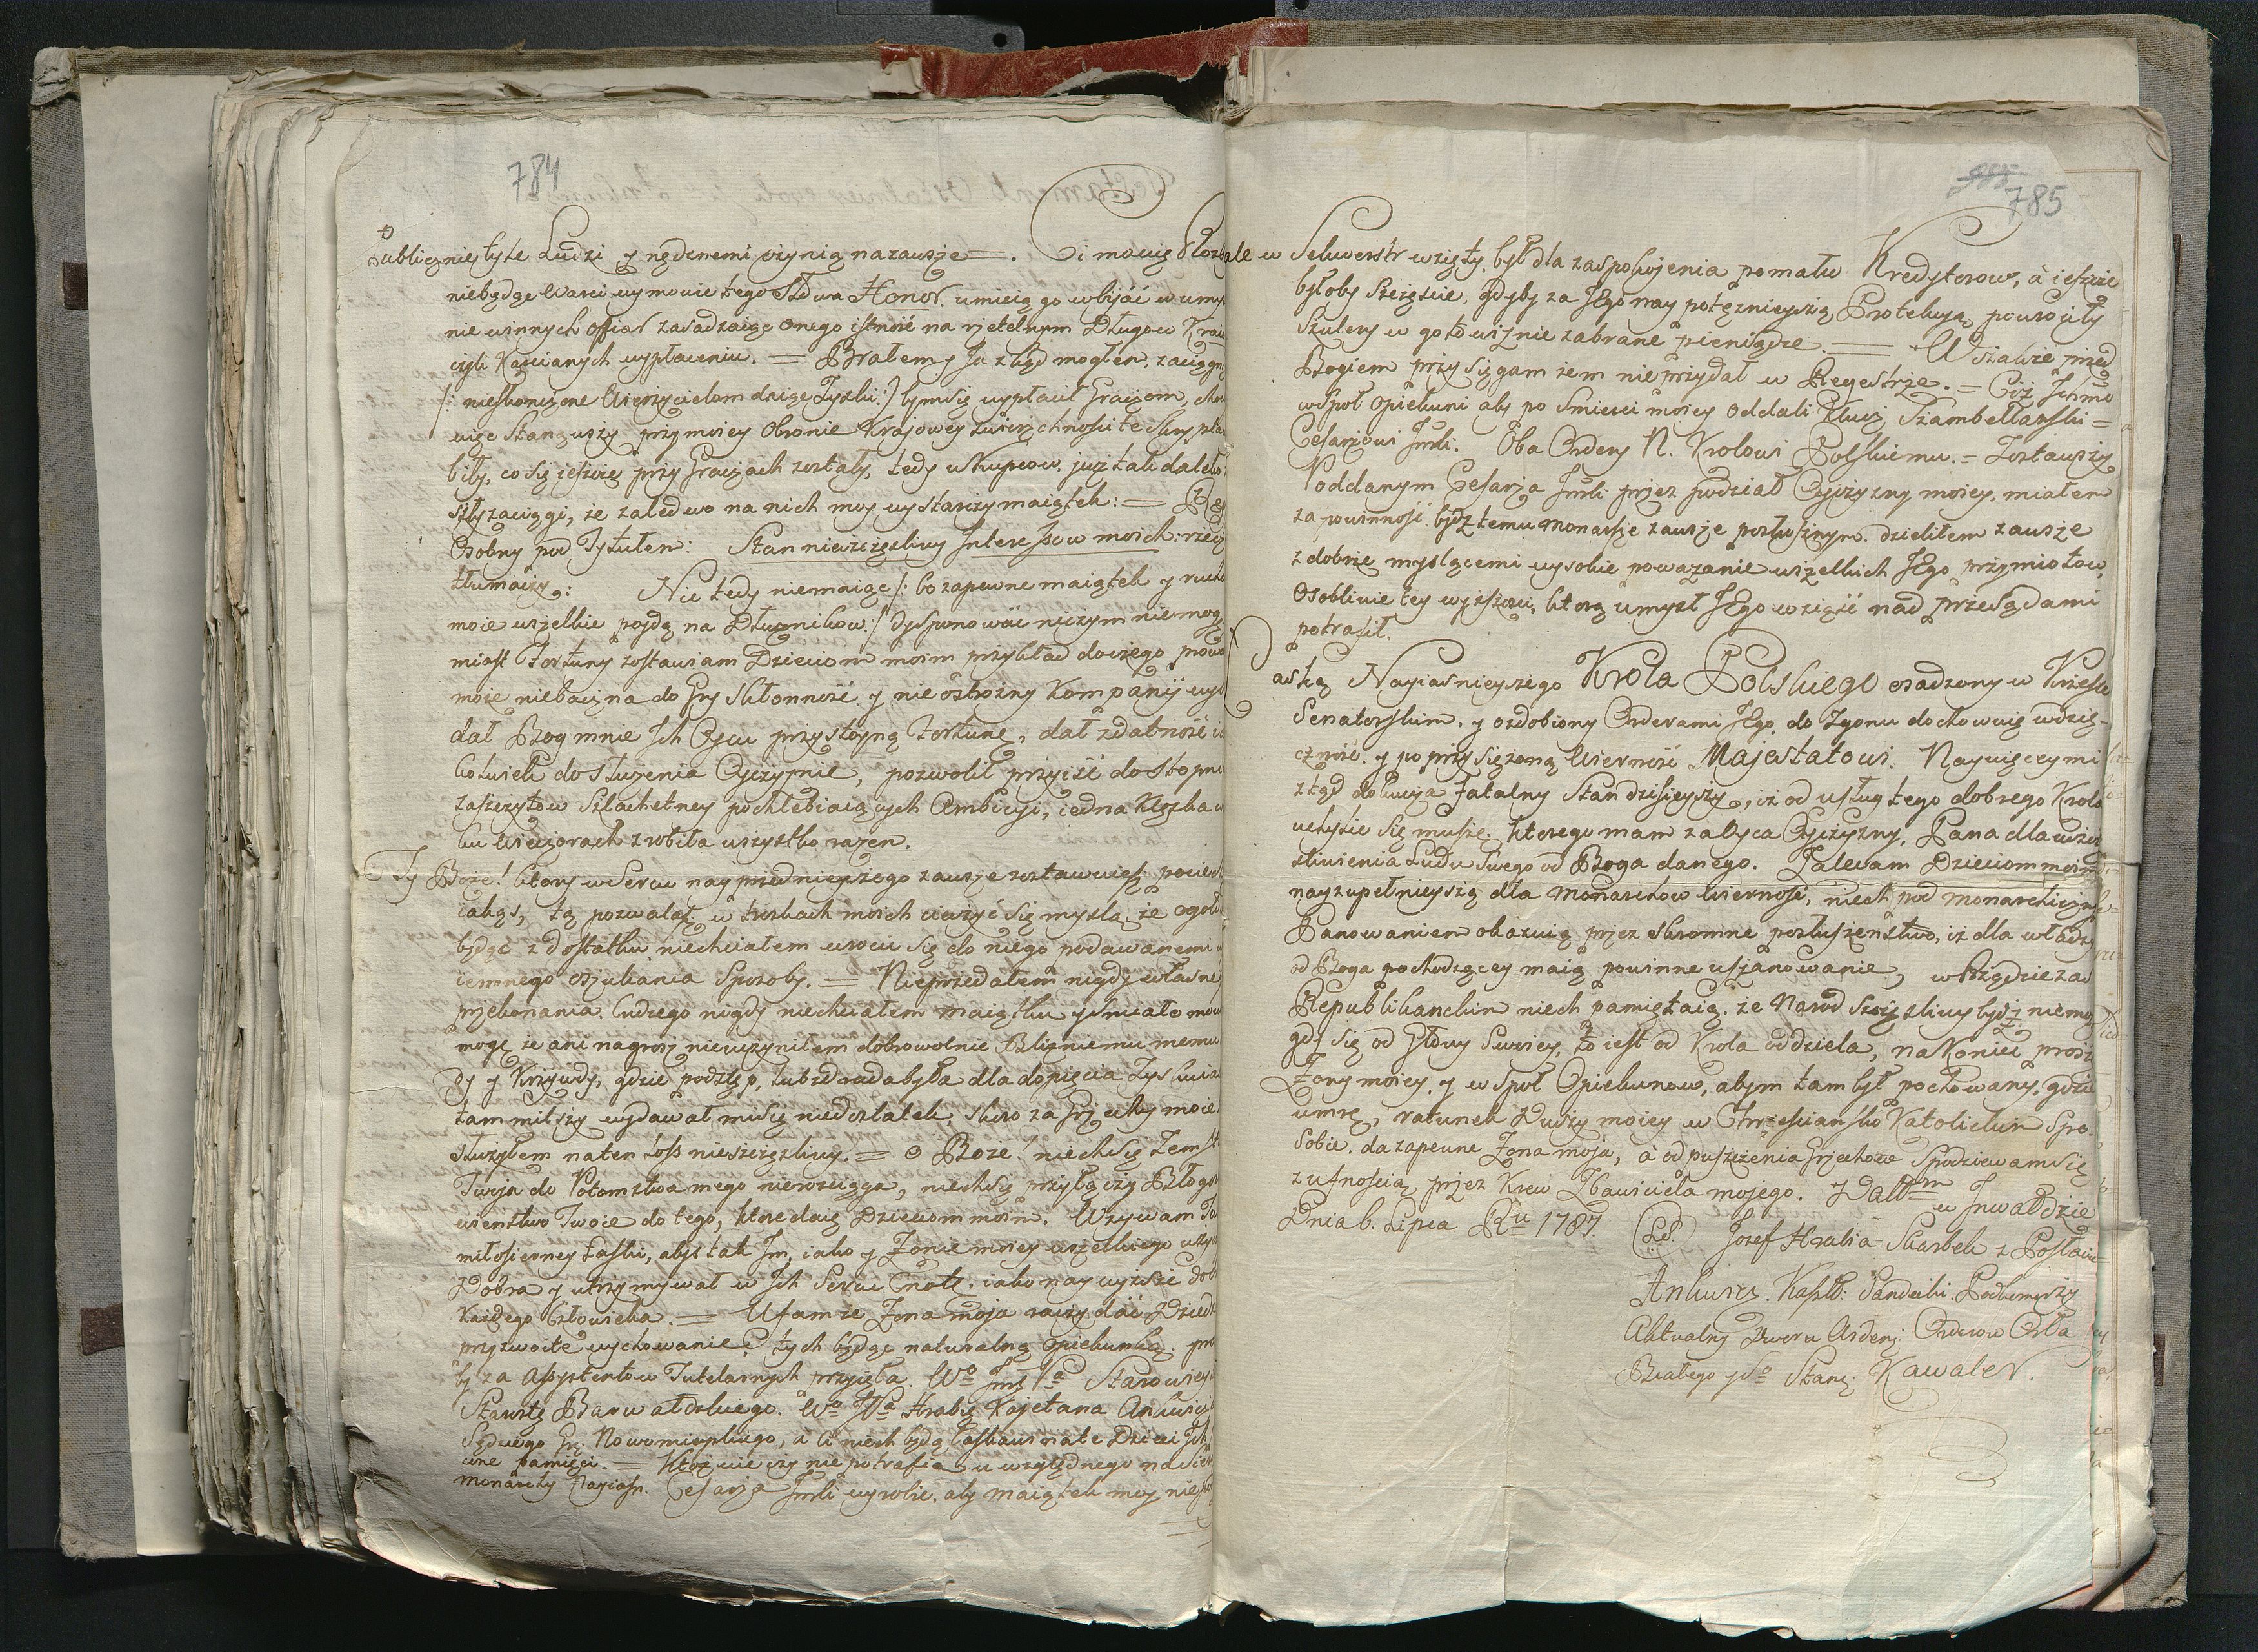 784
Publicznie tyle Ludzi y nędznemi czynią na zawsze =. Ci mowię
niebędąc warci wymowic tego Słowa Honor. umieią go wbijać w umy
nie winnych offiar zasadzaiąc onego istność na rzetelnym Długow
czyli Karcianych wypłaceniu. = Brałem y Ja zkąd mogłem, zaciągn
/: nieskonczone Wierzycielom daiąc Zyski :/ bym się wypłacił Graczom,
przy moiey Obronie Krajowey zwierzchności te
biły, co się ieszcze przy Graczach zostały, tedy u Kupcow, już tak daleko
szły zaciągi, że zaledwo na nich moy wystarczy maiątek: =
Osobny pod Tytułem: Stan nieszczęsliwy Interessow moich: rzecz
tłumaczy: Nic tedy niemaiąc /: bo zapewne maiątek y rucho
moie wszelkie pojdą na Dłużnikow :/ dysponować niczym nie mogę
miast Fortuny zostawiam Dzieciom moim przykład do czego prowa
może niebaczna do Gry skłonność y nie ostrożny Kompanij wyb
dał Bog mnie Ich Oycu przystoyną Fortunę, dał zdatność
kolwiek do służenia Oyczyznie, pozwolił przyiść do Stopni
Zaszczytow Szlachetney pochlebiaiących Ambicyi, iedna Klęska w
ku wieczorach zrobiła wszystko razem.
Ty Boże! ktory w Sercu naypiedniejszego zawsze zostawuiesz pociech
iakąś, tą pozwalasz w troskach moich cieszyć się myslą, że ogoło
będąc z dostatku niechciałem wrocić się do niego podawanemi
iemnego oszukania Sposoby. = Nieprzedałem nigdy własne
przekonania, Cudzego nigdy niechciałem maiątku y smiało mow
mogę, że ani na grosz nieuczyniłem dobrowolnie Blizniemu memu
y Krzywdy, gdzie podstęp, lub zdrada była dla dopięcia Zysku
tam milszy wydawał mi się niedostatek, skoro za Grzechy moie
służyłem na ten łoss nieszczęsliwy. = O Boże! niech się Zemst
Twoja do Potomstwa mego nierozciąga, niech się przyłączy Błogos
wienstwo Twoie do tego, ktore daię Dzieciom moim. Wzywam Tw
miłosierney Łaski, abyś tak Im, iako y Żonie moiey wszelkiego użyc
Dobra y utrzymywał w Ich Sercu Cnotę, iako naywyższe dob
Każdego Człowieka. = Ufam że Żona moja raczy dać Dziec
przyzwoite wychowanie, tych będąc naturalną Opiekunką, pro
by za Assystentow Tutelarnych przyięła. Wo Jmę Pa Starowiey
Starostę Barwałdzkiego. Wo JPa Hrabię Kajetana Ankwicz
Sędziego Gr. Nowomieyskiego, a Ci niech będą łaskawi na te Dzieci Ich
pamięci. = Ktoż wie czy nie potrafią u względnego na
Monarchy Nayiasn. Cesarza Jmci wyrobić, aby maiątek moy nie
785
ale w Sekwestr wzięty, był dla zaspokojenia pomału Kredytorow, a ieszcze
byłoby szczęście, gdyby za Jego naypotęznieyszią Protekcyą powrociły
Szulery w gotowiznie zabrane pieniądze. = Wszakże przed
Bogiem przysięgam żem nie przydał w Regestrze. = Ciż Ichmć
wspoł Opiekuni aby po smierci moiey oddali Klucz Szambellanski =
Cesarzowi Jmci. Oba Ordery N. Krolowi Polskiemu. = Zostawszy
Poddanym Cesarza Jmci przez podział Oyczyzny moiey. miałem
za powinność bydź temu Monarsze zawsze posłusznym. dzieliłem zawsze
z dobrze myslącemi wysokie poważanie wszelkich Jego przymiotow,
Osobliwie tey wyższosci, ktorą umysł Jego wziąść nad przesądami
potrafił.
Łaską Nayiasnieyszego Krola Polskiego osadzony w Krzesle
Senatorskim, y ozdobiony Orderami Jego, do Zgonu dochowuię wdzię-
czność, y poprzysiężoną Wierność Majestatowi. Naywięcey mi
ztąd dokucza fatalny Stan dzisieyszy, iż od usług tego dobrego Krola
uchylić się muszę, ktorego mam za Oyca Oyczyzny, Pana dla uszczę
sliwienia Ludu swego od Boga danego. Zalecam Dzieciom moim
nayzupełnieyszą dla Monarchow Wierność, niech pod Monarchiczn
Panowaniem okazuią przez skromne posłuszenstwo, iż dla władzy
od Boga pochodzącey maią powinne uszanowanie, w Rządzie zaś
Republikanckim niech pamiętaią, że Narod szczęsliwy bydz niemo
gdy się od Głowy Swoiey, to iest od Krola oddziela, nakoniec proszę
Żony moiey, y wspoł Opiekunow, abym tam był pochowany, gdzie
umrę, ratunek Duszy moiey w Chrzescianско Katolickim Spo-
sobie, da zapewne Żona moja, a odpuszczenia Grzechow Spodziewam się
z ufnością przez Krew Zbawiciela mojego. Dattm w Inwałdzie
Dnia 6. Lipca Ru 1787. (LS) Jozef Hrabia Skarbek z Posławic
Ankwicz. Kaszt: Sandecki. Podkomorzy
Aktualny Dworu Orderow Orła
Białego y So Stanis: Kawaler.